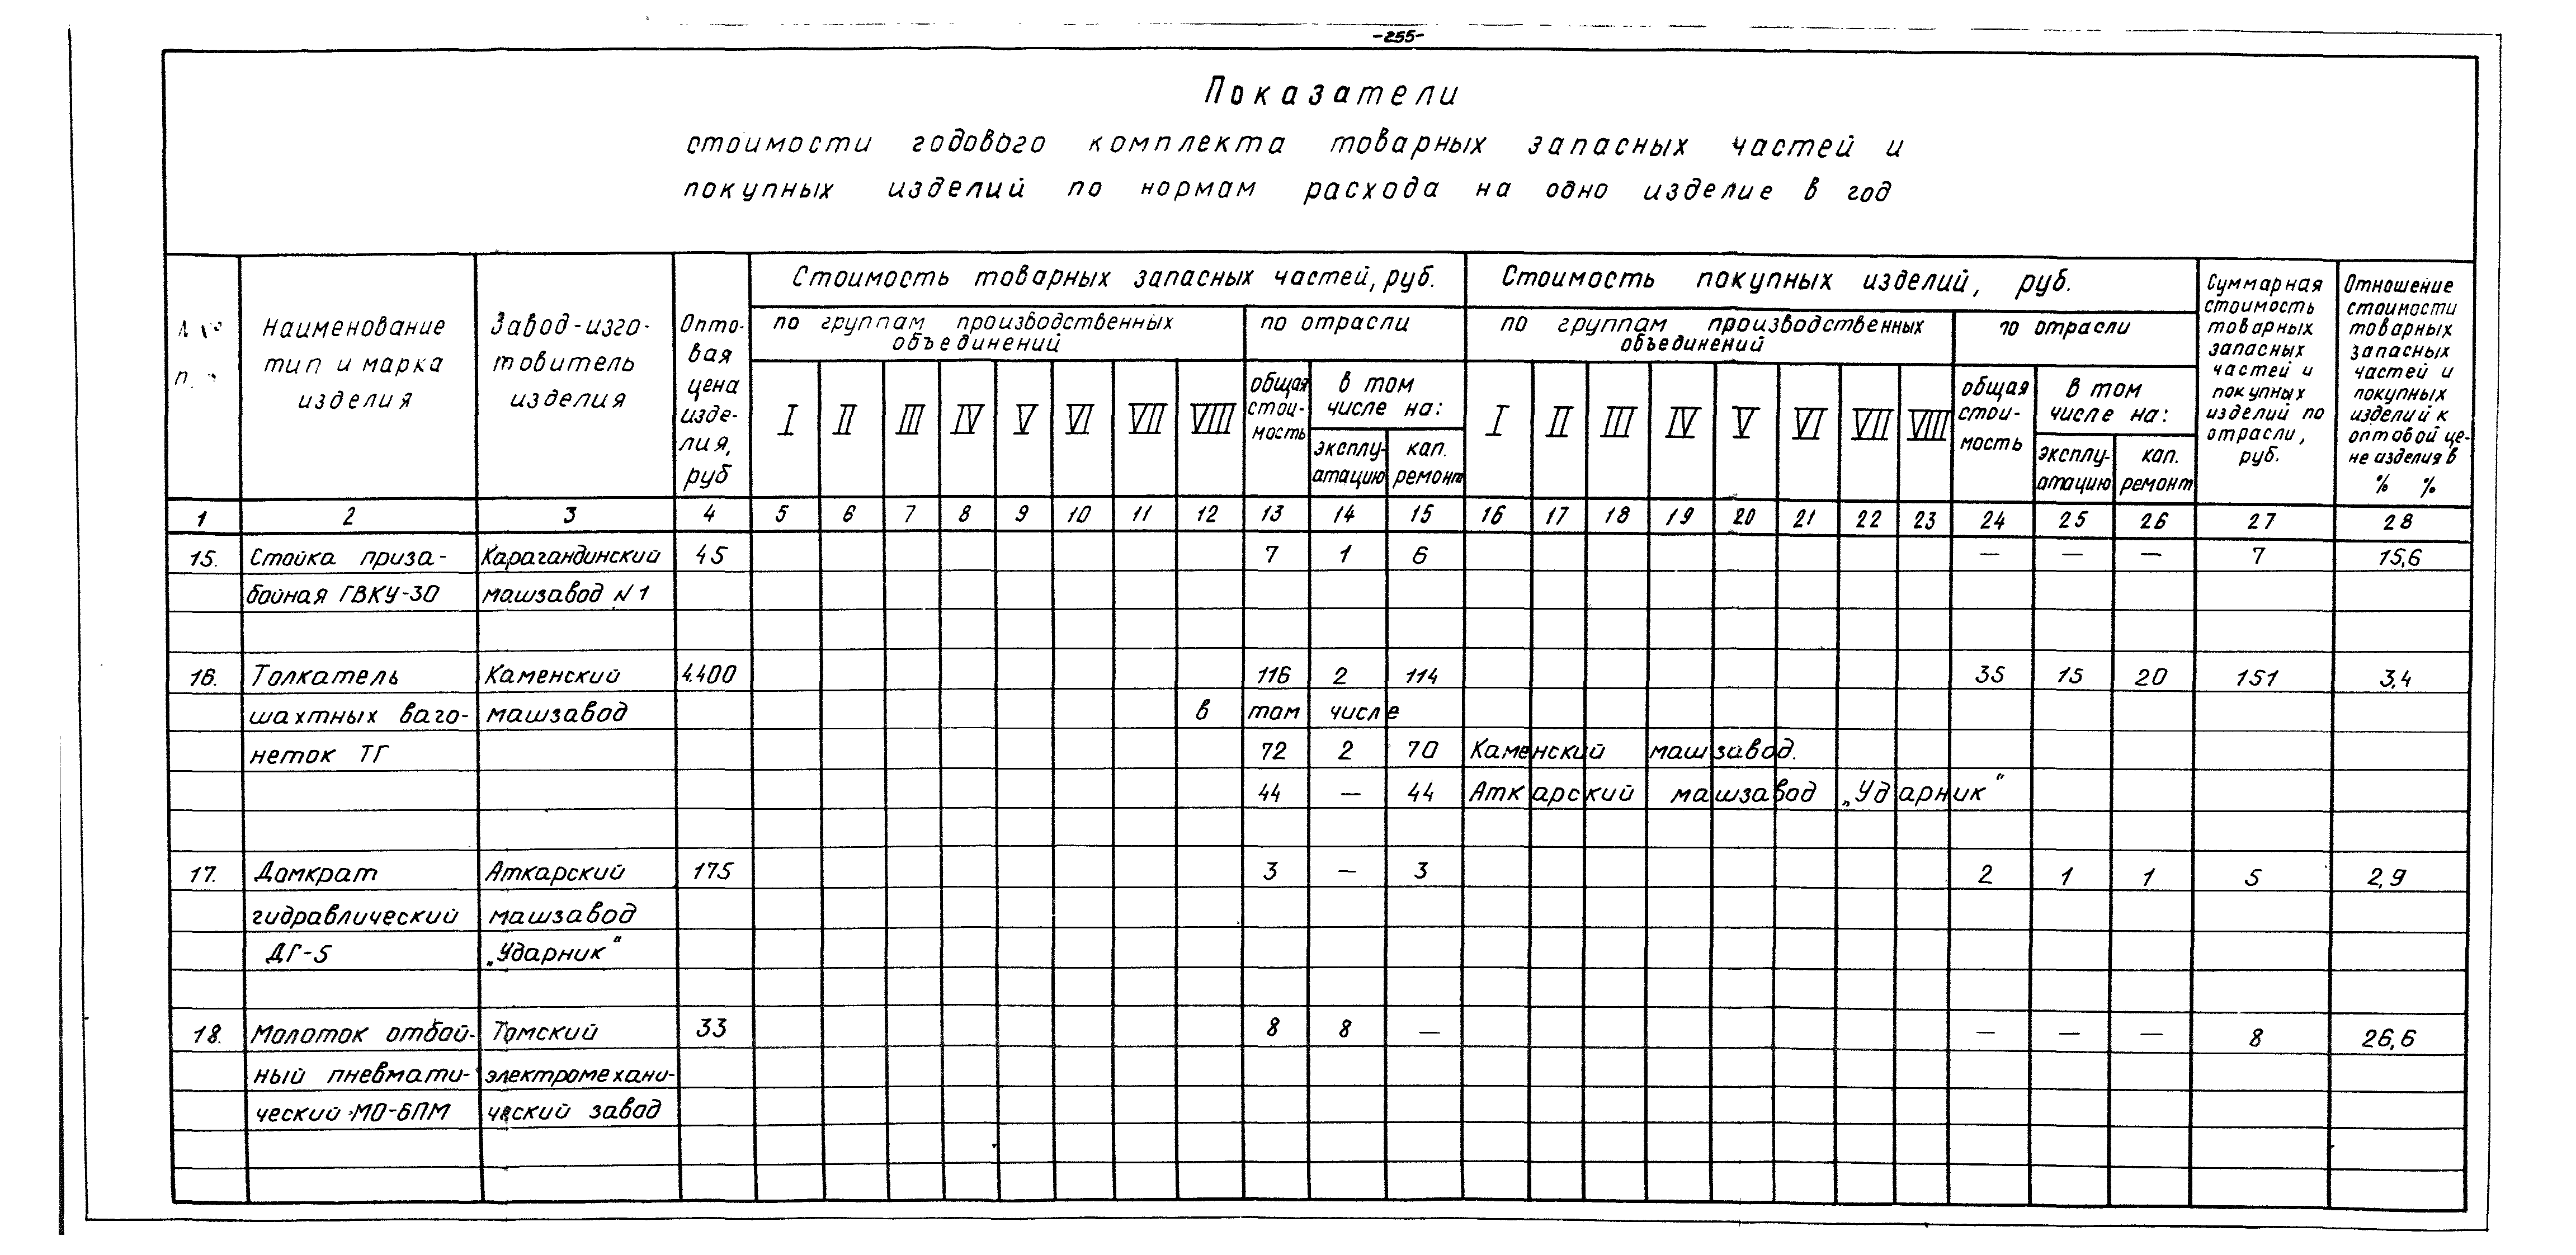 -255-
Показатели
стоимости годового комплекта товарных запасных частей и
покупных изделий по нормам расхода на одно изделие в год
Наименование тип и марка изделия
Завод-изго-товитель изделия
Опто-вая цена изде-лия, руб
Стоимость товарных запасных частей, руб.
по группам производственных объединений
I II III IV V VI VII VIII
по отрасли
общая стои-мость
в том числе на:
эксплу-атацию
кап. ремонт
Стоимость покупных изделий, руб.
по группам производственных объединений
I II III IV V VI VII VIII
по отрасли
общая стои-мость
в том числе на:
эксплу-атацию
кап. ремонт
Суммарная стоимость товарных запасных частей и покупных изделий по отрасли, руб.
Отношение стоимости товарных запасных частей и покупных изделий к оптовой це-не изделия в % %
1 2 3 4 5 6 7 8 9 10 11 12 13 14 15 16 17 18 19 20 21 22 23 24 25 26 27 28
15. Стойка приза- Карагандинский 45 7 1 6 — — — 7 15,6
бойная ГВКУ-30 машзавод N 1
16. Толкатель Каменский 4.400 116 2 114 35 15 20 151 3,4
шахтных ваго- машзавод в том числе
неток ТГ 72 2 70 Каменский машзавод.
44 — 44 Аткарский машзавод „Ударник“
17. Домкрат Аткарский 175 3 — 3 2 1 1 5 2,9
гидравлический машзавод
ДГ-5 „Ударник“
18. Молоток отбой- Томский 33 8 8 — — — — 8 26,6
ный пневмати- электромехани-
ческий МО-6ПМ ческий завод